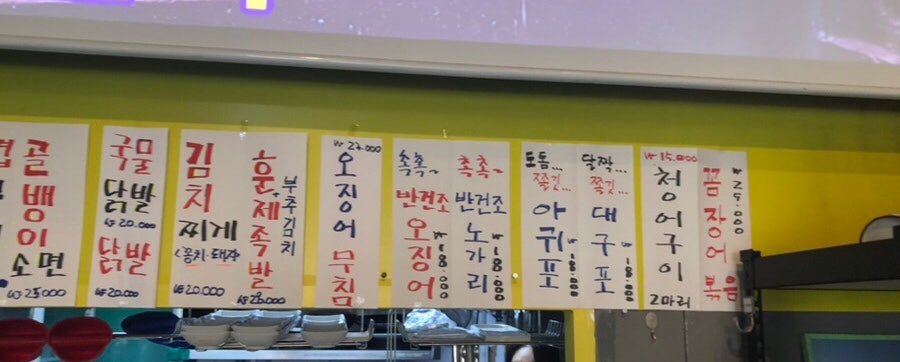 골뱅이
소면
₩25000
국물
닭발
₩20.000
닭발
₩20.000
김치
찌게
<꽁치·돼지>
₩20.000
훈제족발
+부추김치
₩28.000
₩27.000
오징어 무침
촉촉~
반건조
오징어
₩18.000
촉촉~
반건조
노가리
₩18.000
도톰...
쫄깃...
아귀포
₩18.000
달짝...
쫄깃...
대구포
₩18.000
₩15.000
청어구이
2마리
꼼장어볶음
₩25.000